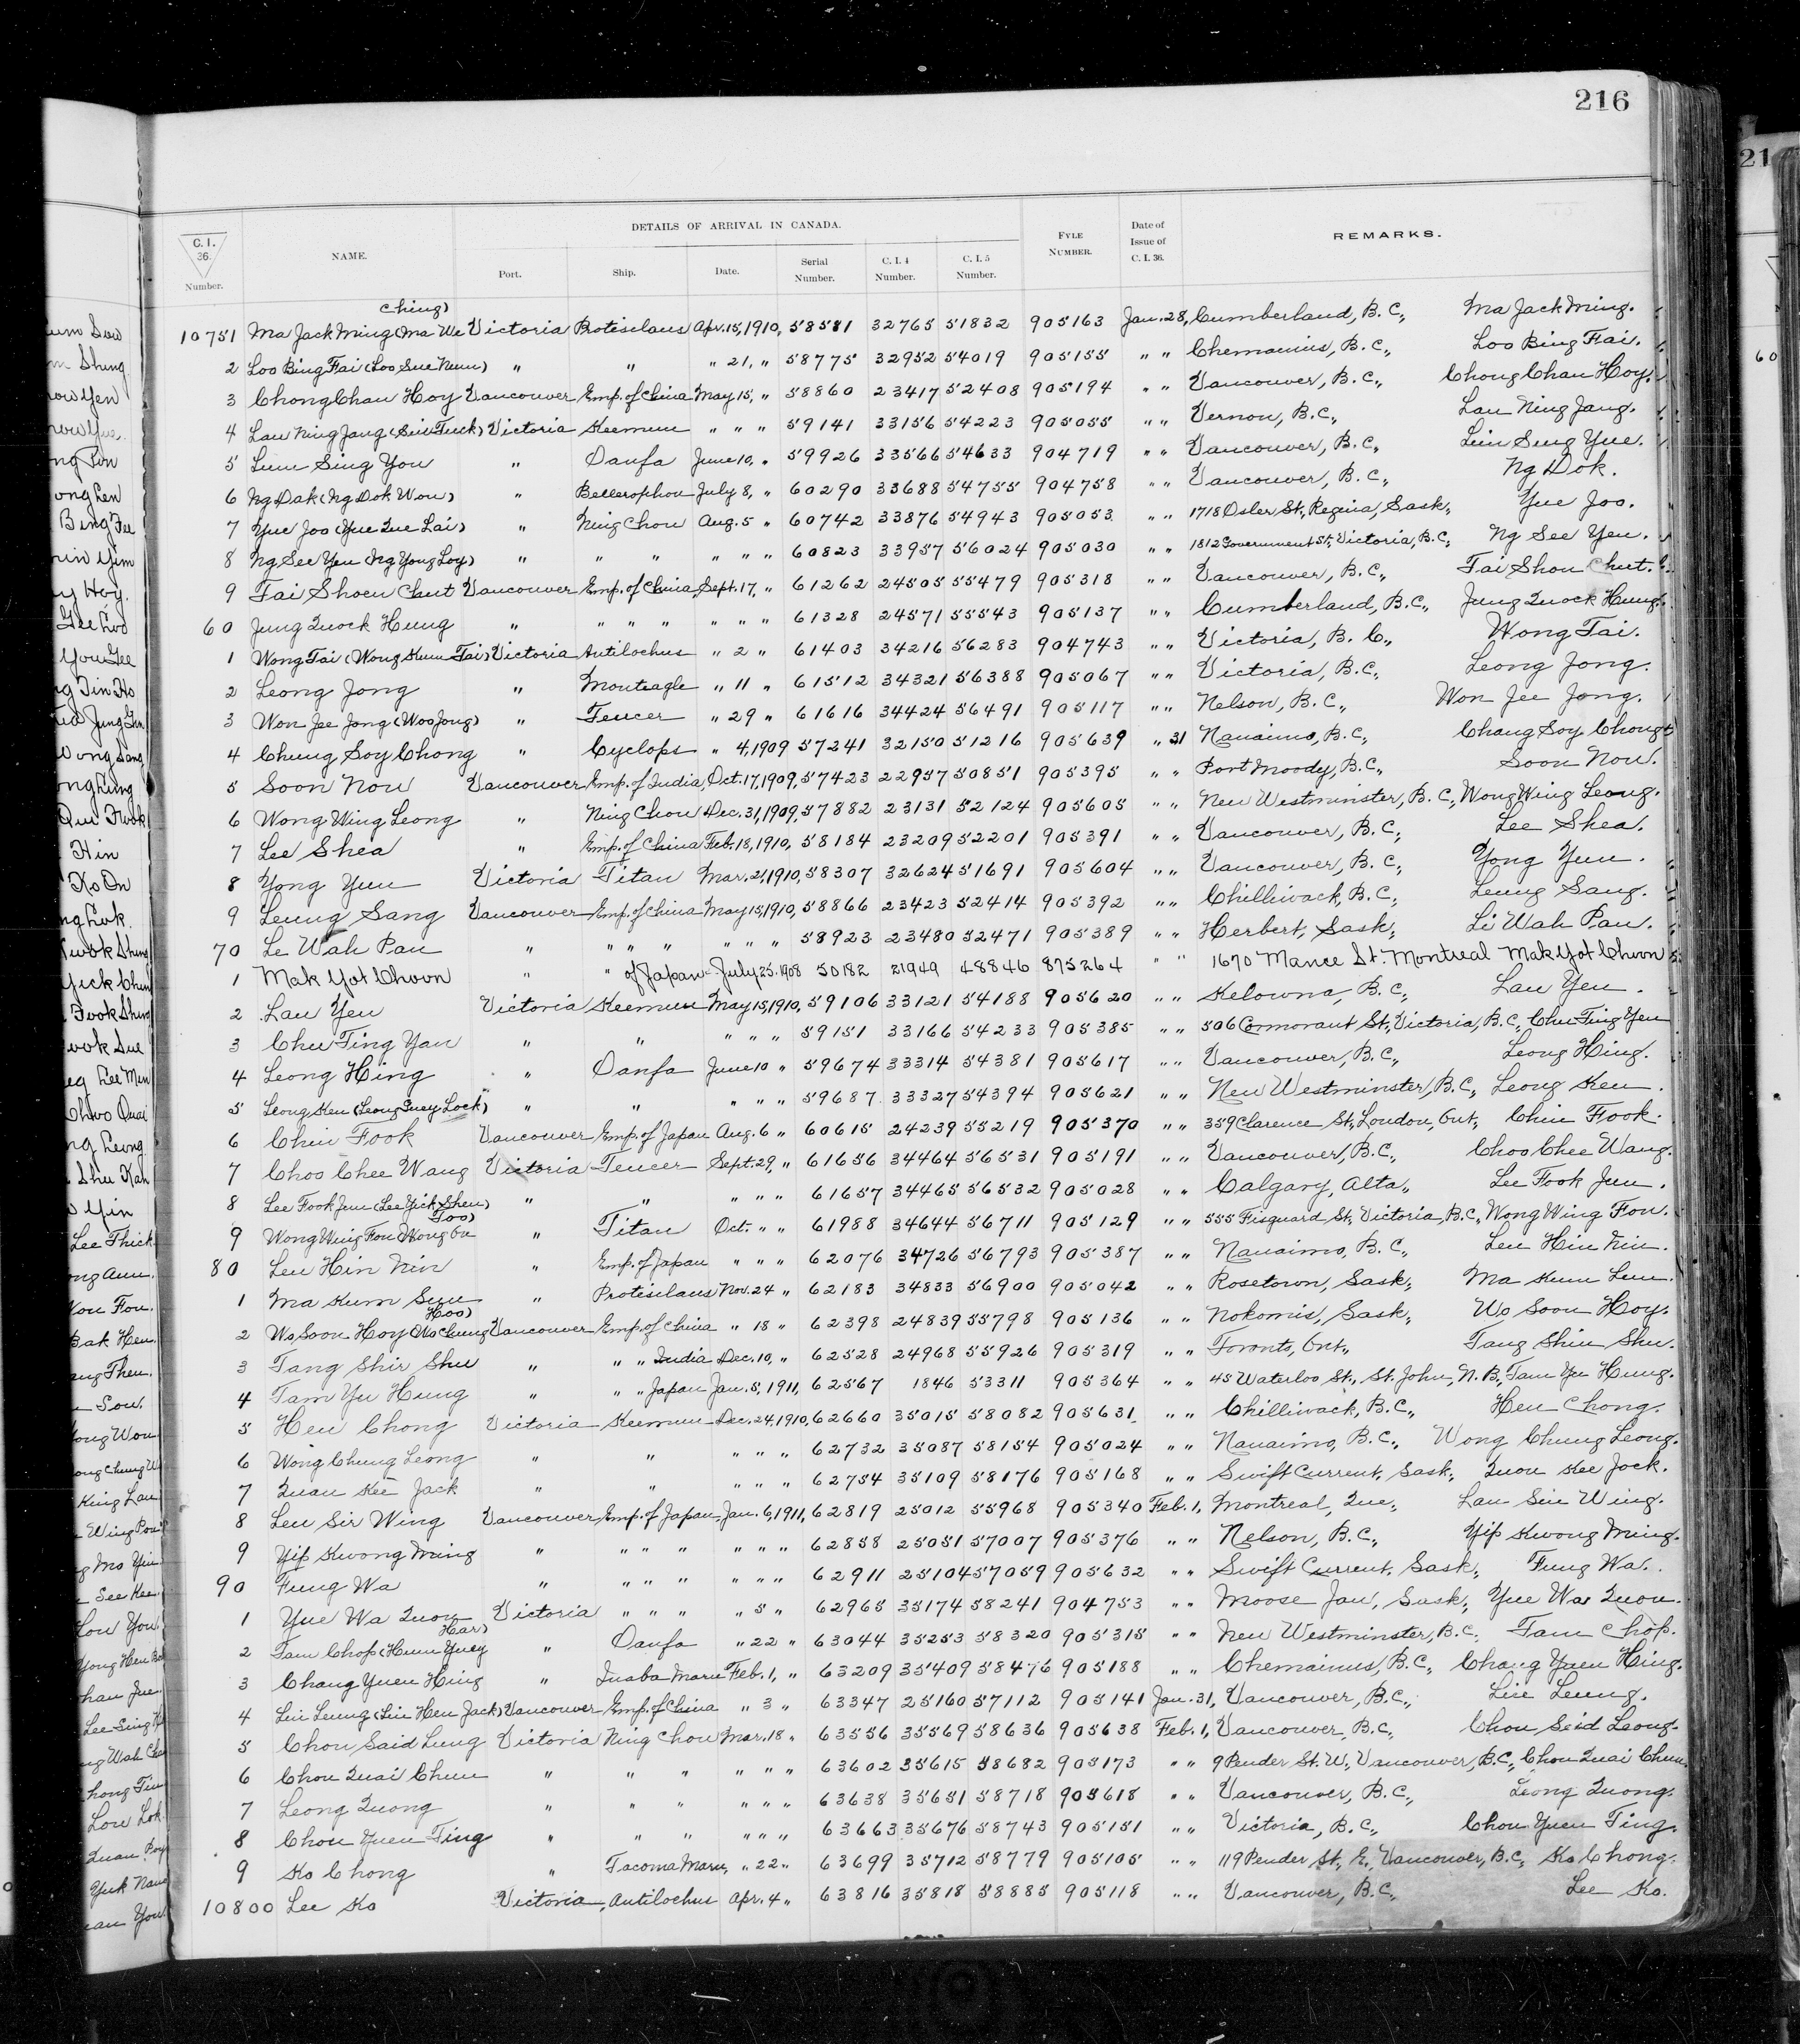 216
DETAILS OF ARRIVAL IN CANADA.
C. I. 36. Number. NAME. Port. Ship. Date. Serial Number. C. I. 4 Number. C. I. 5 Number. FYLE NUMBER. Date of Issue of C. I. 36. REMARKS.
Ching)
10751 Ma Jack Ming (Ma We Victoria Protiselaus Apr. 15, 1910, 58581 32765 51832 905163 Jan. 28, Cumberland, B.C., Ma Jack Ming.
2 Loo Bing Fai (Loo Sue Neun) " " " 21, " 58775 32952 54019 905155 " " Chemanius, B.C., Loo Bing Fai.
3 Chong Chau Hoy Vancouver Emp. of China May 15, " 58860 23417 52408 905194 " " Vancouver, B.C., Chong Chau Hoy.
4 Lau Ning Jang (Siu Tuck) Victoria Keemun " " " 59141 33156 54223 905055 " " Vernon, B.C., Lau Ning Jang.
5 Lum Sing You " Oanfa June 10, " 59926 33566 54633 904719 " " Vancouver, B.C., Lim Sing Yue.
6 Ng Dak (Ng Dok Won) " Bellerophon July 8, " 60290 33688 54755 904758 " " Vancouver, B.C., Ng Dok.
7 Yue Joo (Yue Lue Lai) " Ning Chow Aug. 5 " 60742 33876 54943 905053 " " 1718 Osler St., Regina, Sask., Yue Joo.
8 Ng See Yen (Ng Yong Loy) " " " " " " 60823 33957 56024 905030 " " 1812 Government St., Victoria, B.C., Ng See Yen.
9 Tai Shoen Chut Vancouver Emp. of China, Sept. 17, " 61262 24505 55479 905318 " " Vancouver, B.C., Tai Shon Chut.
60 Jung Quock Hung " " " " " " " 61328 24571 55543 905137 " " Cumberland, B.C., Jung Quock Hung.
1 Wong Tai (Wong Kum Tai) Victoria Antilochus " 2 " 61403 34216 56283 904743 " " Victoria, B.C., Wong Tai.
2 Leong Jong " Monteagle " 11 " 61512 34321 56388 905067 " " Victoria, B.C., Leong Jong.
3 Won Jee Jong (Woo Jong) " Teucer " 29 " 61616 34424 56491 905117 " " Nelson, B.C., Won Jee Jong.
4 Chung Soy Chong " Cyclops " 4, 1909 57241 32150 51216 905639 " 31 Nanaimo, B.C., Chang Soy Chong
5 Soon Nou Vancouver Emp. of India, Oct. 17, 1909, 57423 22957 50851 905395 " " Port Moody, B.C., Soon Nou.
6 Wong Wing Leong " Ning Chow Dec. 31, 1909, 57882 23131 52124 905605 " " New Westminster, B.C., Wong Wing Leong.
7 Lee Shea " Emp. of China Feb. 18, 1910, 58184 23209 52201 905391 " " Vancouver, B.C., Lee Shea.
8 Yong Yun Victoria Titan Mar. 21, 1910, 58307 32624 51691 905604 " " Vancouver, B.C., Yong Yun.
9 Leung Sang Vancouver Emp. of China May 15, 1910, 58866 23423 52414 905392 " " Chilliwack, B.C., Leung Sang.
70 Le Wah Pau " " " " " " " 58923 23480 52471 905389 " " Herbert, Sask., Li Wah Pau.
1 Mak Yot Choon " " of Japan July 25, 1908 50182 21949 48846 875264 " " 1670 Mance St. Montreal Mak Yot Choon
2 Lau Yen Victoria Keemun May 15, 1910, 59106 33121 54188 905620 " " Kelowna, B.C., Lau Yen.
3 Chu Ting Yan " " " " " 59151 33166 54233 905385 " " 506 Cormorant St., Victoria, B.C., Chu Ting Yen
4 Leong Hing " Oanfa June 10 " 59674 33314 54381 905617 " " Vancouver, B.C., Leong Hing.
5 Leong Ken (Leong Suey Lock) " " " " " 59687 33327 54394 905621 " " New Westminster, B.C., Leong Ken.
6 Chin Fook Vancouver Emp. of Japan Aug. 6 " 60615 24239 55219 905370 " " 359 Clarence St., London, Ont., Chin Fook.
7 Choo Chee Wang Victoria Teucer Sept. 29, " 61656 34464 56531 905191 " " Vancouver, B.C., Choo Chee Wang.
8 Lee Fook Jun (Lee Yick Shen) " " " " " 61657 34465 56532 905028 " " Calgary, Alta., Lee Fook Jun.
Too)
9 Wong Wing Fon (Wong On " Titan Oct. " " 61988 34644 56711 905129 " " 555 Fisguard St., Victoria, B.C., Wong Wing Fon.
80 Leu Hin Nin " Emp. of Japan " " " 62076 34726 56793 905387 " " Nanaimo, B.C., Leu Hin Nin.
1 Ma Kum Sun " Protiselaus Nov. 24 " 62183 34833 56900 905042 " " Rosetown, Sask., Ma Kum Lun.
Hoo)
2 Wo Soon Hoy (Wo Chung Vancouver Emp. of China " 18 " 62398 24839 55798 905136 " " Nokomis, Sask., Wo Soon Hoy.
3 Tang Shir Shu " " " India Dec. 10, " 62528 24968 55926 905319 " " Toronto, Ont., Tang Shiu Shu.
4 Tam Yu Hung " " " Japan Jan. 5, 1911, 62567 1846 53311 905364 " " 45 Waterloo St., St. John, N.B., Tam Yu Hung.
5 Hen Chong Victoria Keemun Dec. 24, 1910, 62660 35015 58082 905631 " " Chilliwack, B.C., Hen Chong.
6 Wong Chung Leong " " " " " 62732 35087 58154 905024 " " Nanaimo, B.C., Wong Chung Leong.
7 Quan Kee Jack " " " " " 62754 35109 58176 905168 " " Swift Current, Sask., Quon Kee Jock.
8 Leu Sir Wing Vancouver Emp. of Japan, Jan. 6, 1911, 62819 25012 55968 905340 Feb. 1, Montreal, Que., Lau Siu Wing.
9 Yip Kwong Ming " " " " " " " 62858 25051 57007 905376 " " Nelson, B.C., Yip Kwong Ming.
90 Fung Wa " " " " " " " 62911 25104 57059 905632 " " Swift Current, Sask., Fung Wa.
1 Yue Wa Quon Victoria " " " " 5 " 62965 35174 58241 904753 " " Moose Jaw, Sask., Yue Wa Quon.
Har)
2 Tam Chop (Hum Yuey " Oanfa " 22 " 63044 35253 58320 905315 " " New Westminster, B.C., Tam Chop.
3 Chang Yuen Hing " Inaba Maru Feb. 1, " 63209 35409 58476 905188 " " Chemainus, B.C., Chang Yuen Hing.
4 Liu Leung (Liu Hen Jack) Vancouver Emp. of China " 3 " 63347 25160 57112 905141 Jan. 31, Vancouver, B.C., Liu Leung.
5 Chou Said Lung Victoria Ning Chow Mar. 18 " 63556 35569 58636 905638 Feb. 1, Vancouver, B.C., Chou Seid Leong.
6 Chou Quai Chun " " " " " " 63602 35615 58682 905173 " " 9 Pender St. W., Vancouver, B.C., Chou Quai Chun.
7 Leong Quong " " " " " " 63638 35651 58718 905618 " " Vancouver, B.C., Leong Quong.
8 Chou Yuen Ting " " " " " " 63663 35676 58743 905151 " " Victoria, B.C., Chou Yuen Ting.
9 Ko Chong " Tacoma Maru, " 22 " 63699 35712 58779 905105 " " 119 Pender St., E., Vancouver, B.C., Ko Chong.
10800 Lee Ko Victoria, Antilochus Apr. 4 " 63816 35818 58885 905118 " " Vancouver, B.C., Lee Ko.